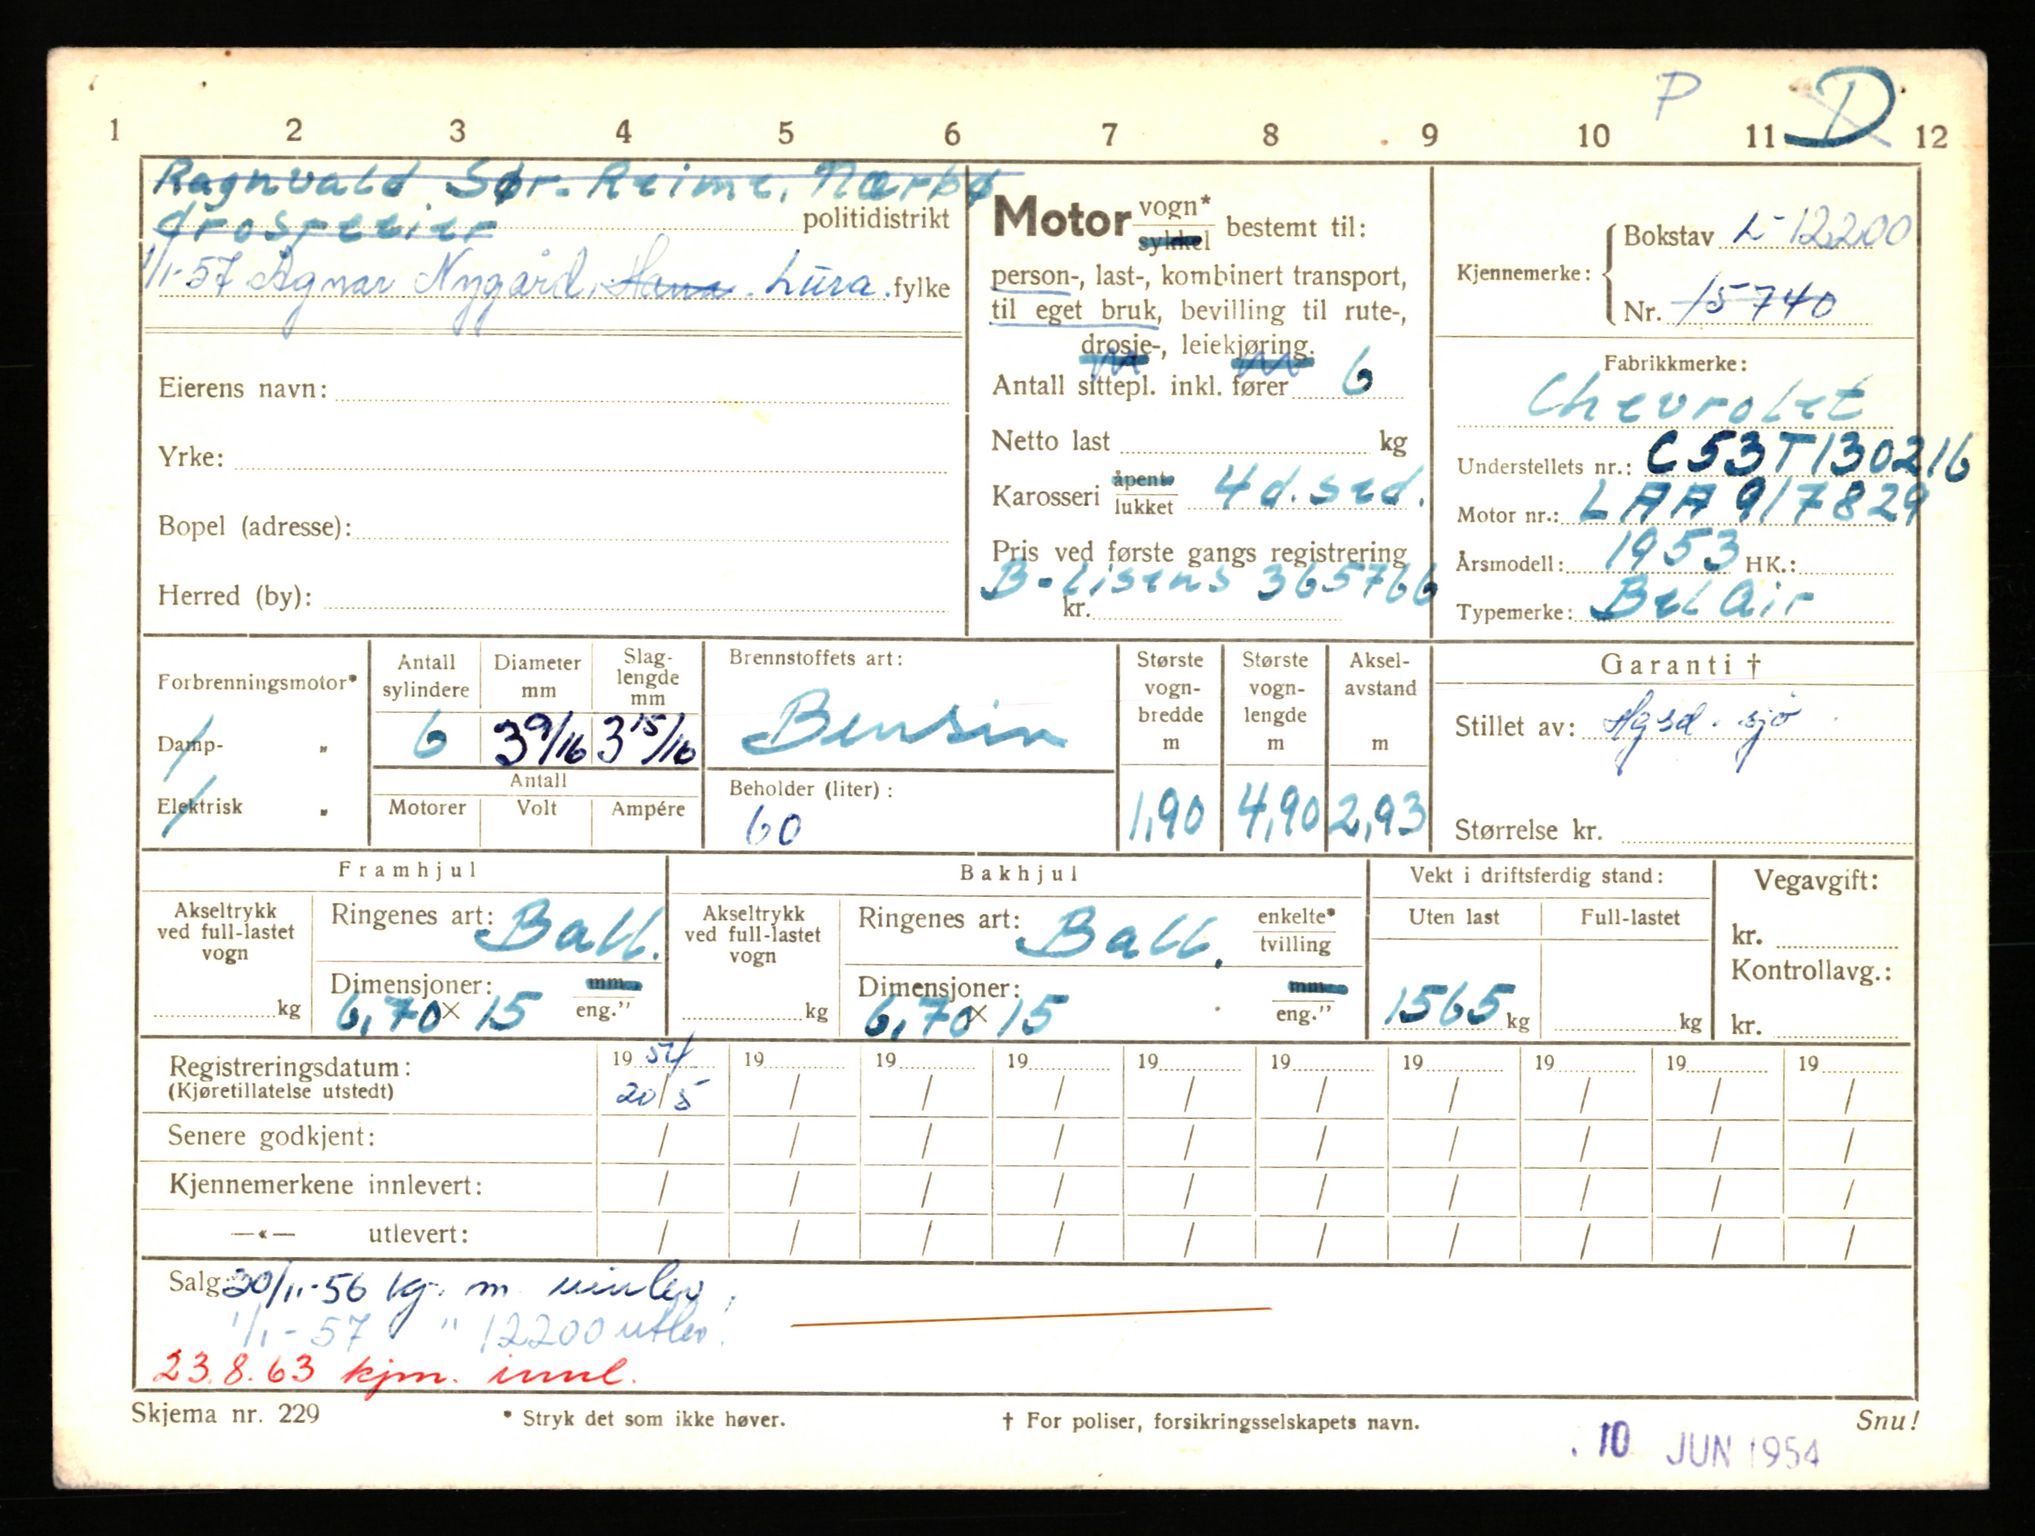 P D
1 2 3 4 5 6 7 8 9 10 11 12
Ragnvald Sør-Reime, Nærbø
drosjeeier politidistrikt
1/1-57 Agnar Nygård, Hana. Lura. fylke
Eierens navn:
Yrke:
Bopel (adresse):
Herred (by):
Motor vogn* sykkel bestemt til:
person-, last-, kombinert transport,
til eget bruk, bevilling til rute-,
drosje-, leiekjøring.
Antall sittepl. inkl. fører 6
Netto last kg
Karosseri åpent lukket 4 d. sed.
Pris ved første gangs registrering
B-Lisens 365766
kr.
Kjennemerke: Bokstav L-12200
Nr. 15740
Fabrikkmerke:
Chevrolet
Understellets nr.: C53T130216
Motor nr.: LAA917829
Årsmodell: 1953 HK.:
Typemerke: Bel Air
Forbrenningsmotor*
Damp- „
Elektrisk „
Antall sylindere 6
Diameter mm 3 9/16
Slag-lengde mm 3 15/16
Antall
Motorer Volt Ampére
Brennstoffets art:
Bensin
Beholder (liter):
60
Største vogn-bredde m 1,90
Største vogn-lengde m 4,90
Aksel-avstand m 2,93
Garanti †
Stillet av: Hgsd. sjø
Størrelse kr.
Framhjul
Akseltrykk ved full-lastet vogn
kg
Ringenes art: Ball.
Dimensjoner: mm
6,70 x 15 eng.”
Bakhjul
Akseltrykk ved full-lastet vogn
kg
Ringenes art: Ball. enkelte* tvilling
Dimensjoner: mm
6,70 x 15 eng.”
Vekt i driftsferdig stand:
Uten last Full-lastet
1565 kg kg
Vegavgift:
kr.
Kontrollavg.:
kr.
Registreringsdatum: 19 54 19 19 19 19 19 19 19 19 19
(Kjøretillatelse utstedt) 20/5 / / / / / / / / /
Senere godkjent: / / / / / / / / / /
Kjennemerkene innlevert: / / / / / / / / / /
—«— utlevert: / / / / / / / / / /
Salg: 30/11-56 kj. m. innlev.
1/1-57 " 12200 utlev.
23.8.63 kjm. innl.
Skjema nr. 229 * Stryk det som ikke høver. † For poliser, forsikringsselskapets navn. Snu!
10 JUN 1954